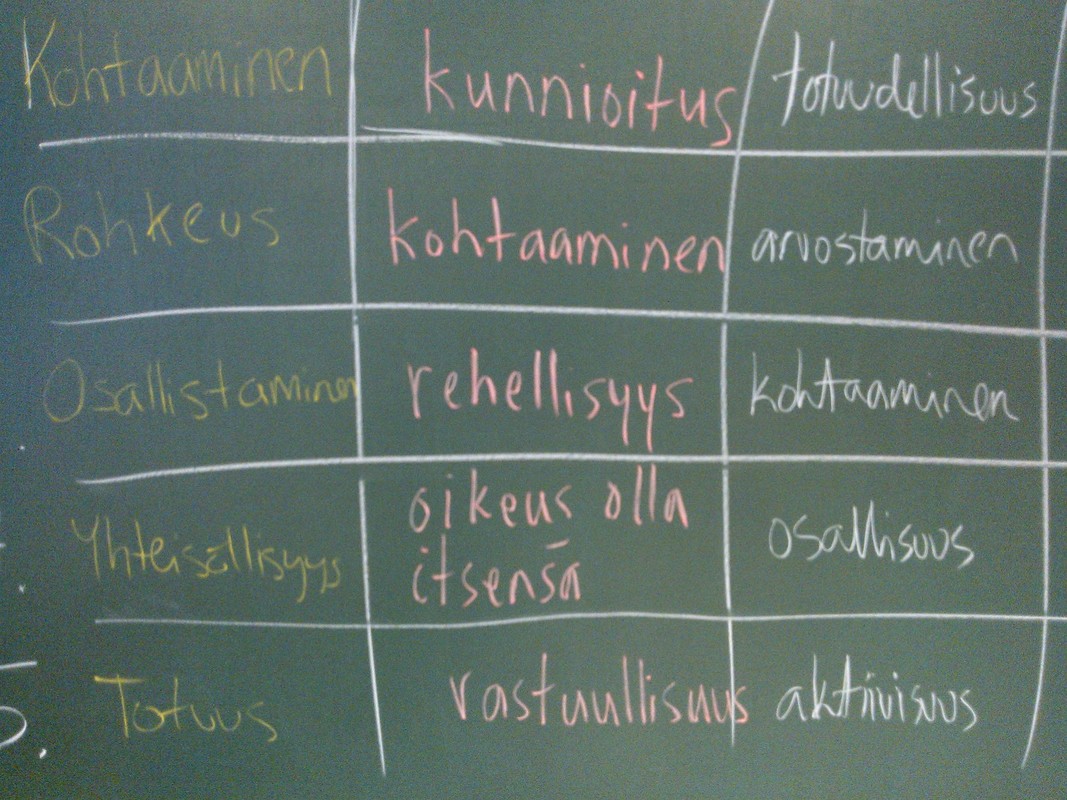 Kohtaaminen kunnioitus totuudellisuus
Rohkeus kohtaaminen arvostaminen
Osallistaminen rehellisyys kohtaaminen
Yhteisöllisyys oikeus olla itsensä osallisuus
5. Totuus vastuullisuus aktiivisuus